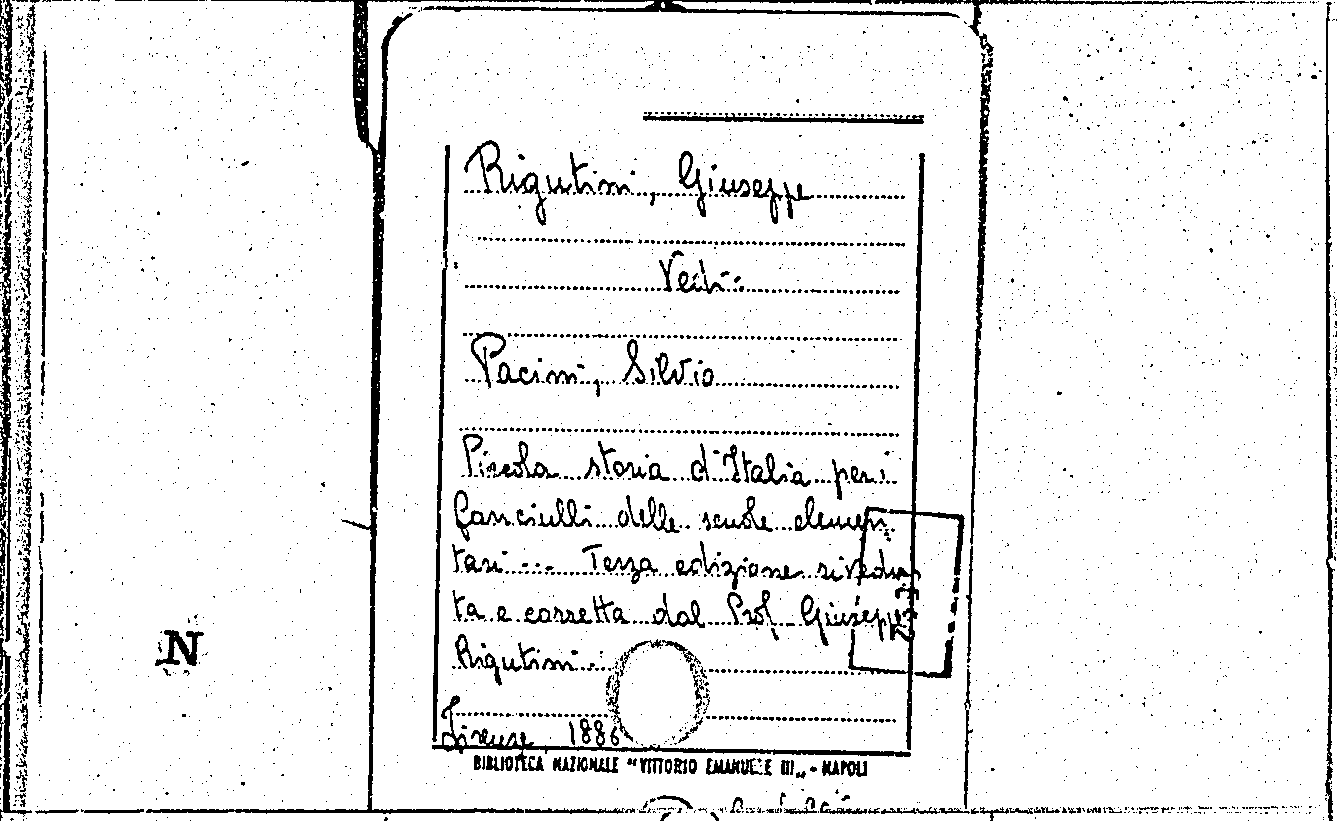 Rigutini, Giuseppe
Vedi:
Pacini, Silvio
Piccola storia d'Italia per i
fanciulli delle scuole elemen
tari ... Terza edizione rivedu
ta e corretta dal Prof. Giuseppe
Rigutini.
Firenze 1886
N
BIBLIOTECA NAZIONALE "VITTORIO EMANUELE III„ - NAPOLI